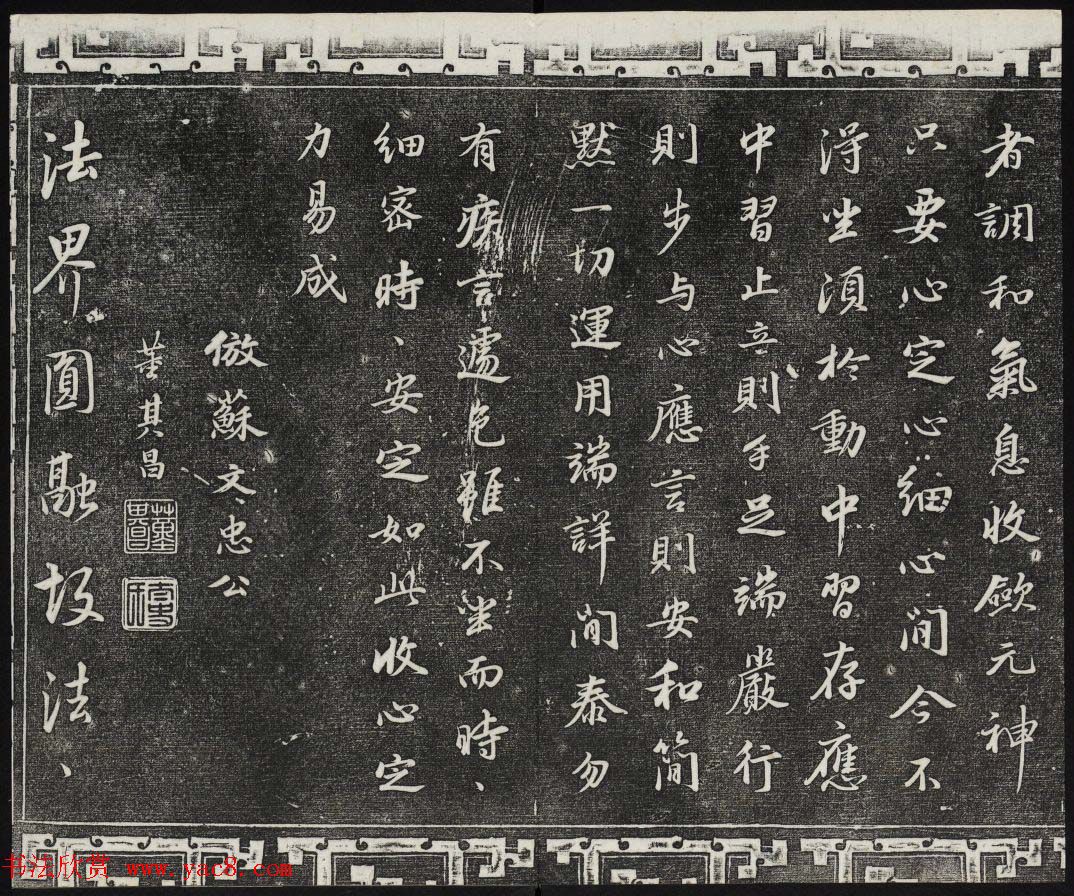 者調和氣息收歛元神
只要心定心細心閒今不
得坐須於動中習存應
中習止立則手足端嚴行
則步与心應言則安和簡
默一切運用端詳閒泰勿
有疾言遽色雖不坐而時、
細密時、安定如此收心定
力易成
倣蘇文忠公
董其昌
法界圓融故法、
书法欣赏 www.yac8.com